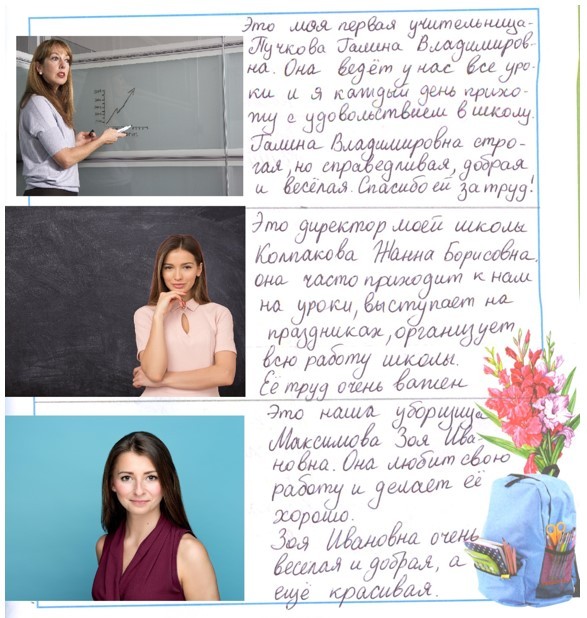 Это моя первая учительница-
Пучкова Галина Владимиров-
на. Она ведёт у нас все уро-
ки и я каждый день прихо-
жу с удовольствием в школу.
Галина Владимировна стро-
гая, но справедливая, добрая
и весёлая. Спасибо ей за труд!
Это директор моей школы
Колпакова Жанна Борисовна.
она часто приходит к нам
на уроки, выступает на
праздниках, организует
всю работу школы.
Её труд очень важен
Это наша уборщица
Максимова Зоя Ива-
новна. Она любит свою
работу и делает её
хорошо.
Зоя Ивановна очень
веселая и добрая, а
ещё красивая.